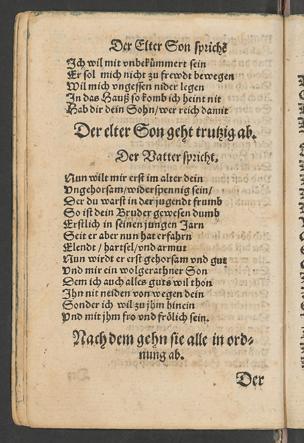 Der Elter Son spricht
Ich wil mit vnbekümmert sein
Er sol mich nicht zu frewdt bewegen
Wil mich vngessen nider legen
In das Hauß so komb ich heint nit
Hab dir dein Sohn/wer reich damit
Der elter Son geht trutzig ab.
Der Vatter spricht.
Nun wilt mir erst im alter dein
Vngehorsam/widerspennig sein/
Der du warst in der jugendt frumb
So ist dein Bruder gewesen dumb
Erstlich in seinen jungen Jarn
Seit er aber nun hat erfahrn
Elendt / hartsel/vnd armut
Nun wirdt er erst gehorsam vnd gut
Vnd mir ein wolgerathner Son
Dem ich auch alles guts wil thon
Ihn nit neiden von wegen dein
Sonder ich wil zu jhm hinein
Vnd mit jhm fro vnd frölich sein.
Nach dem gehn sie alle in ord-
nung ab.
Der